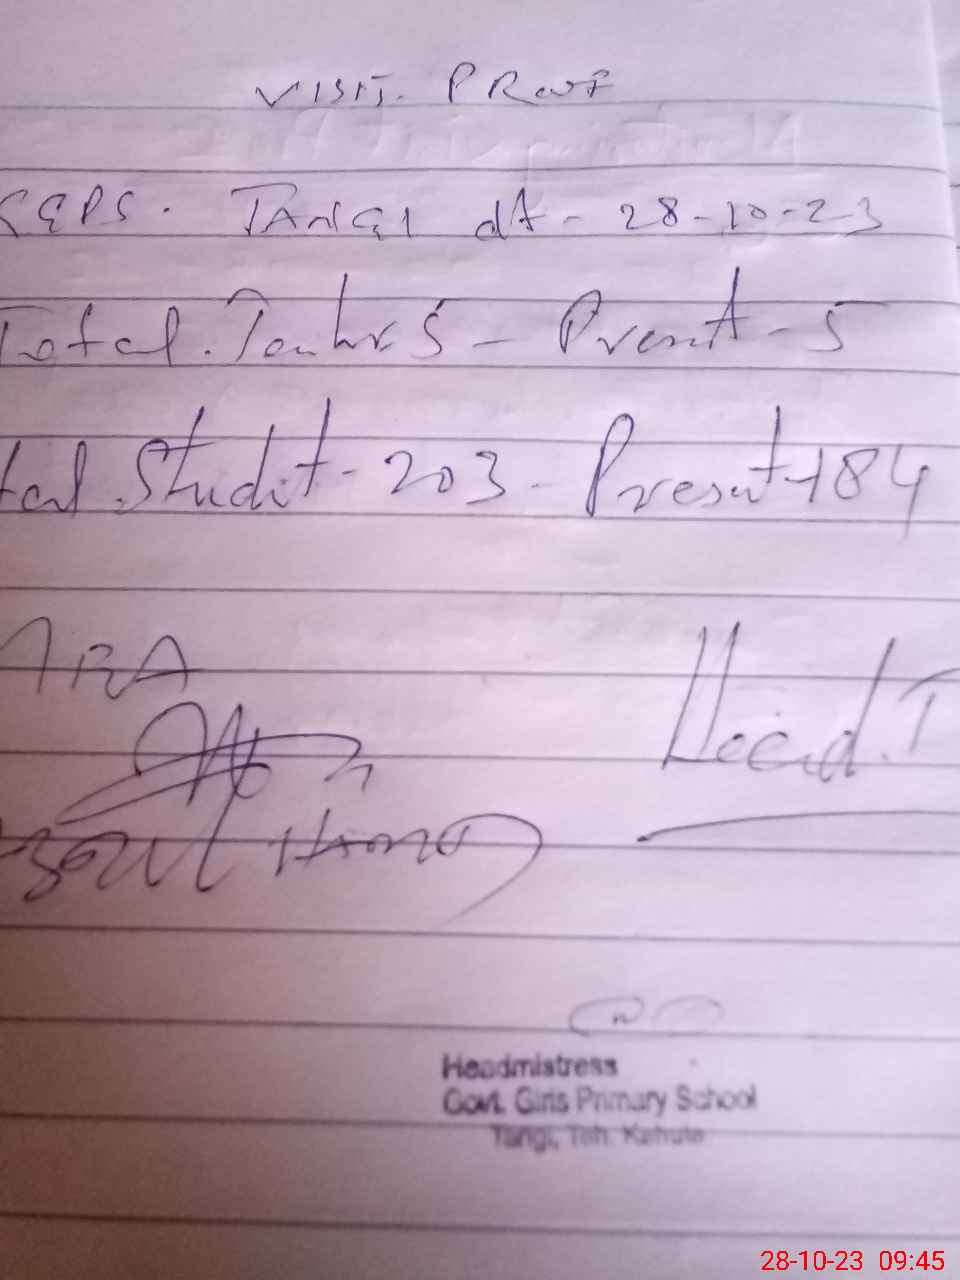 VISIT. PROOF
GGPS. TANGI dt - 28-10-23
Total. Teachers - Present - 5
tal. Student - 203 - Present - 184
ARA
Head. T
Headmistress
Govt. Girls Primary School
Tangi, Teh. Kahuta
28-10-23 09:45